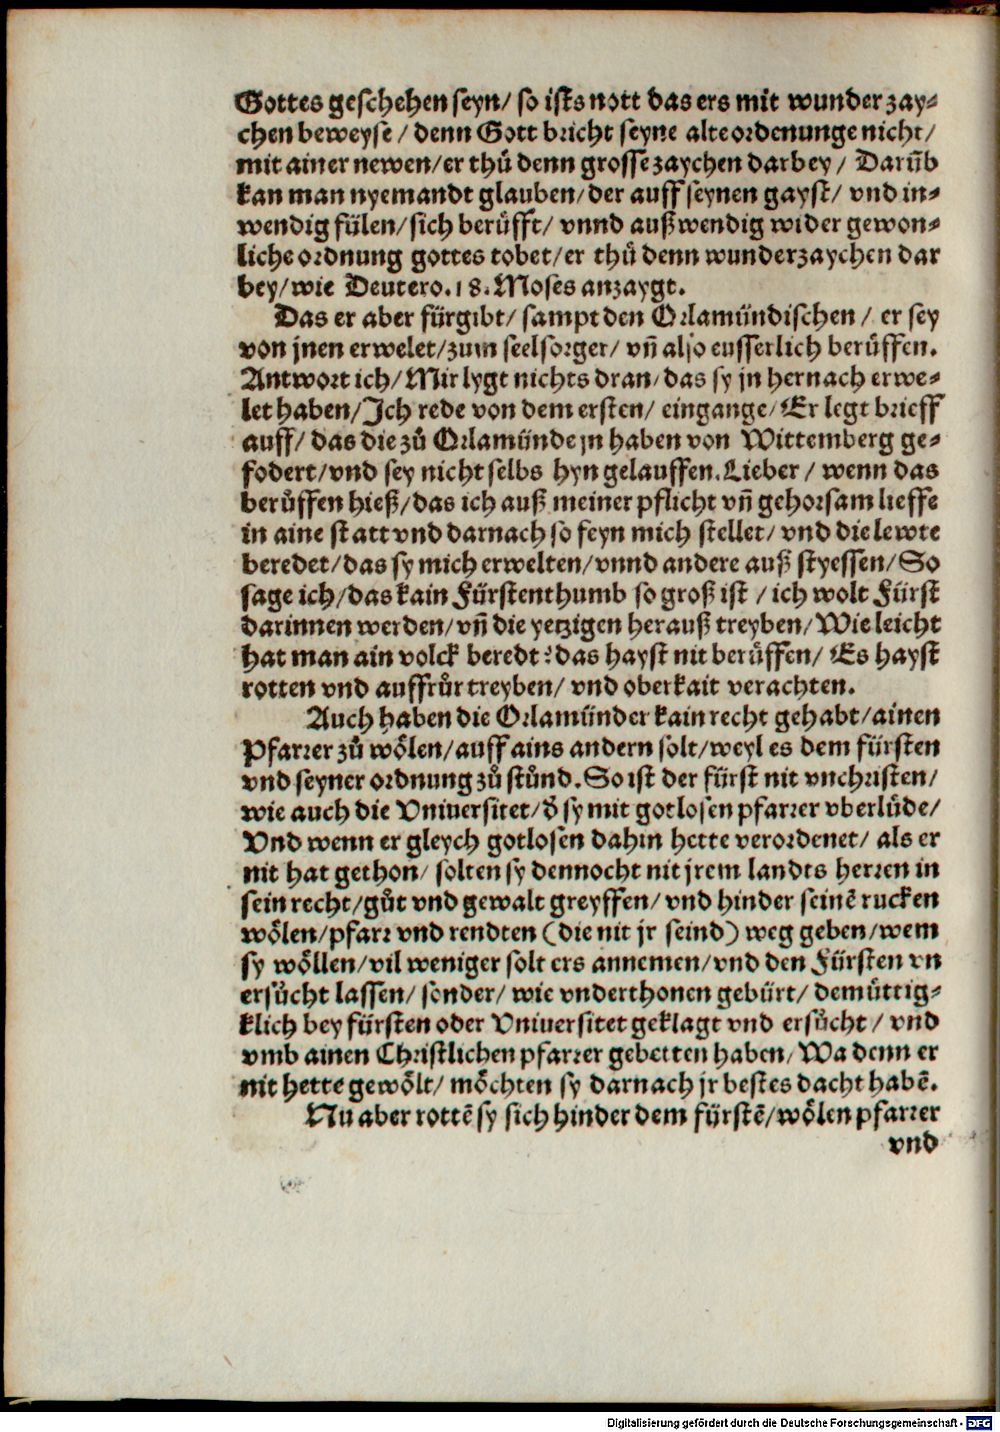 Gottes geschehen seyn/ so ists nott das ers mit wunder zay⸗
chen beweyse / denn Gott bricht seyne alte ordenunge nicht/
mit ainer newen/er thů denn grosse zaychen darbey / Darūb
kan man nyemandt glauben/der auff seynen gayst/ vnd in⸗
wendig fülen/sich berůfft/ vnnd außwendig wider gewon⸗
liche ordnung gottes tobet/er thů denn wunderzaychen dar
bey/wie Deutero.18.Moses anzaygt.
Das er aber fürgibt/ sampt den Orlamündischen/ er sey
von jnen erwelet/zum seelsorger/ vñ also eusserlich berůffen.
Antwort ich/Mir lygt nichts dran/das sy jn hernach erwe⸗
let haben/Ich rede von dem ersten/ eingange/Er legt brieff
auff/ das die zů Orlamünde jn haben von Wittemberg ge⸗
fodert/vnd sey nicht selbs hyn gelauffen.Lieber / wenn das
berůffen hieß/das ich auß meiner pflicht vñ gehorsam lieffe
in aine statt vnd darnach so feyn mich stellet/ vnd die lewte
beredet/das sy mich erwelten/vnnd andere auß styessen/So
sage ich/das kain Fürstenthumb so groß ist / ich wolt Fürst
darinnen werden/vñ die yetzigen herauß treyben/Wie leicht
hat man ain volck beredt? das hayst nit berůffen/ Es hayst
rotten vnd auffrůr treyben/ vnd oberkait verachten.
Auch haben die Orlamünder kain recht gehabt/ainen
Pfarrer zů wölen/auff ains andern solt/weyl es dem fürsten
vnd seyner ordnung zů stůnd.So ist der fürst nit vnchristen/
wie auch die Vniuersitet/ð sy mit gotlosen pfarrer vberlůde/
Vnd wenn er gleych gotlosen dahin hette verordenet/ als er
nit hat gethon/ solten sy dennocht nit jrem landts herren in
sein recht/gůt vnd gewalt greyffen/ vnd hinder seinē rucken
wölen/pfarr vnd rendten (die nit jr seind) weg geben/wem
sy wöllen/vil weniger solt ers annemen/vnd den Fürsten vn
ersůcht lassen/ sonder/ wie vnderthonen gebürt/ demüttig⸗
klich bey fürsten oder Vniuersitet geklagt vnd ersůcht / vnd
vmb ainen Christlichen pfarrer gebetten haben/Wa denn er
nit hette gewölt/ möchten sy darnach jr bestes dacht habē.
Nu aber rottē sy sich hinder dem fürstē/wölen pfarrer
vnd
Digitalisierung gefördert durch die Deutsche Forschungsgemeinschaft - DFG